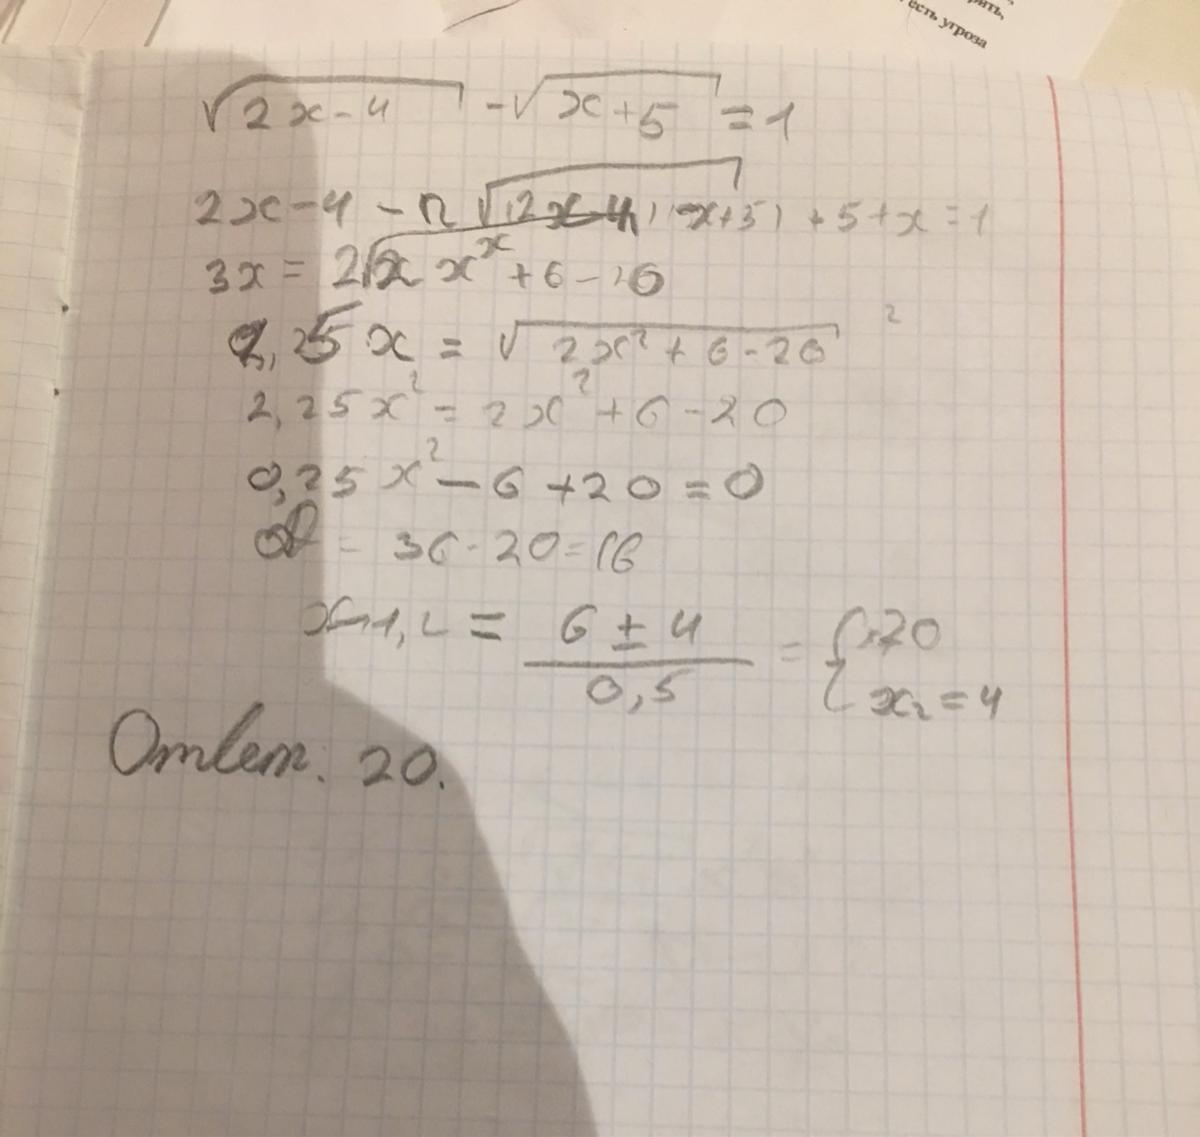 есть угроза
√(2x-4) - √(x+5) = 1
2x-4-2√((2x-4)(x+5)) + 5+x = 1
3x = 2√ +6-20
x = √(2x²+6-20)
2,25x² = 2x²+6-20
0,25x²-6+20=0
= 36-20=16
x1,2 = (6±4)/0,5 = { 20
x2=4
Ответ: 20.